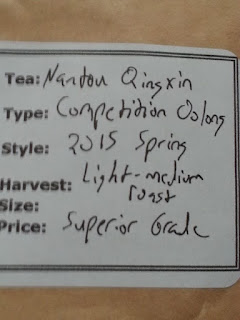 Tea: Nantou Qingxin
Type: Competition Oolong
Style: 2015 Spring
Harvest: Light-medium
roast
Size:
Price: Superior Grade